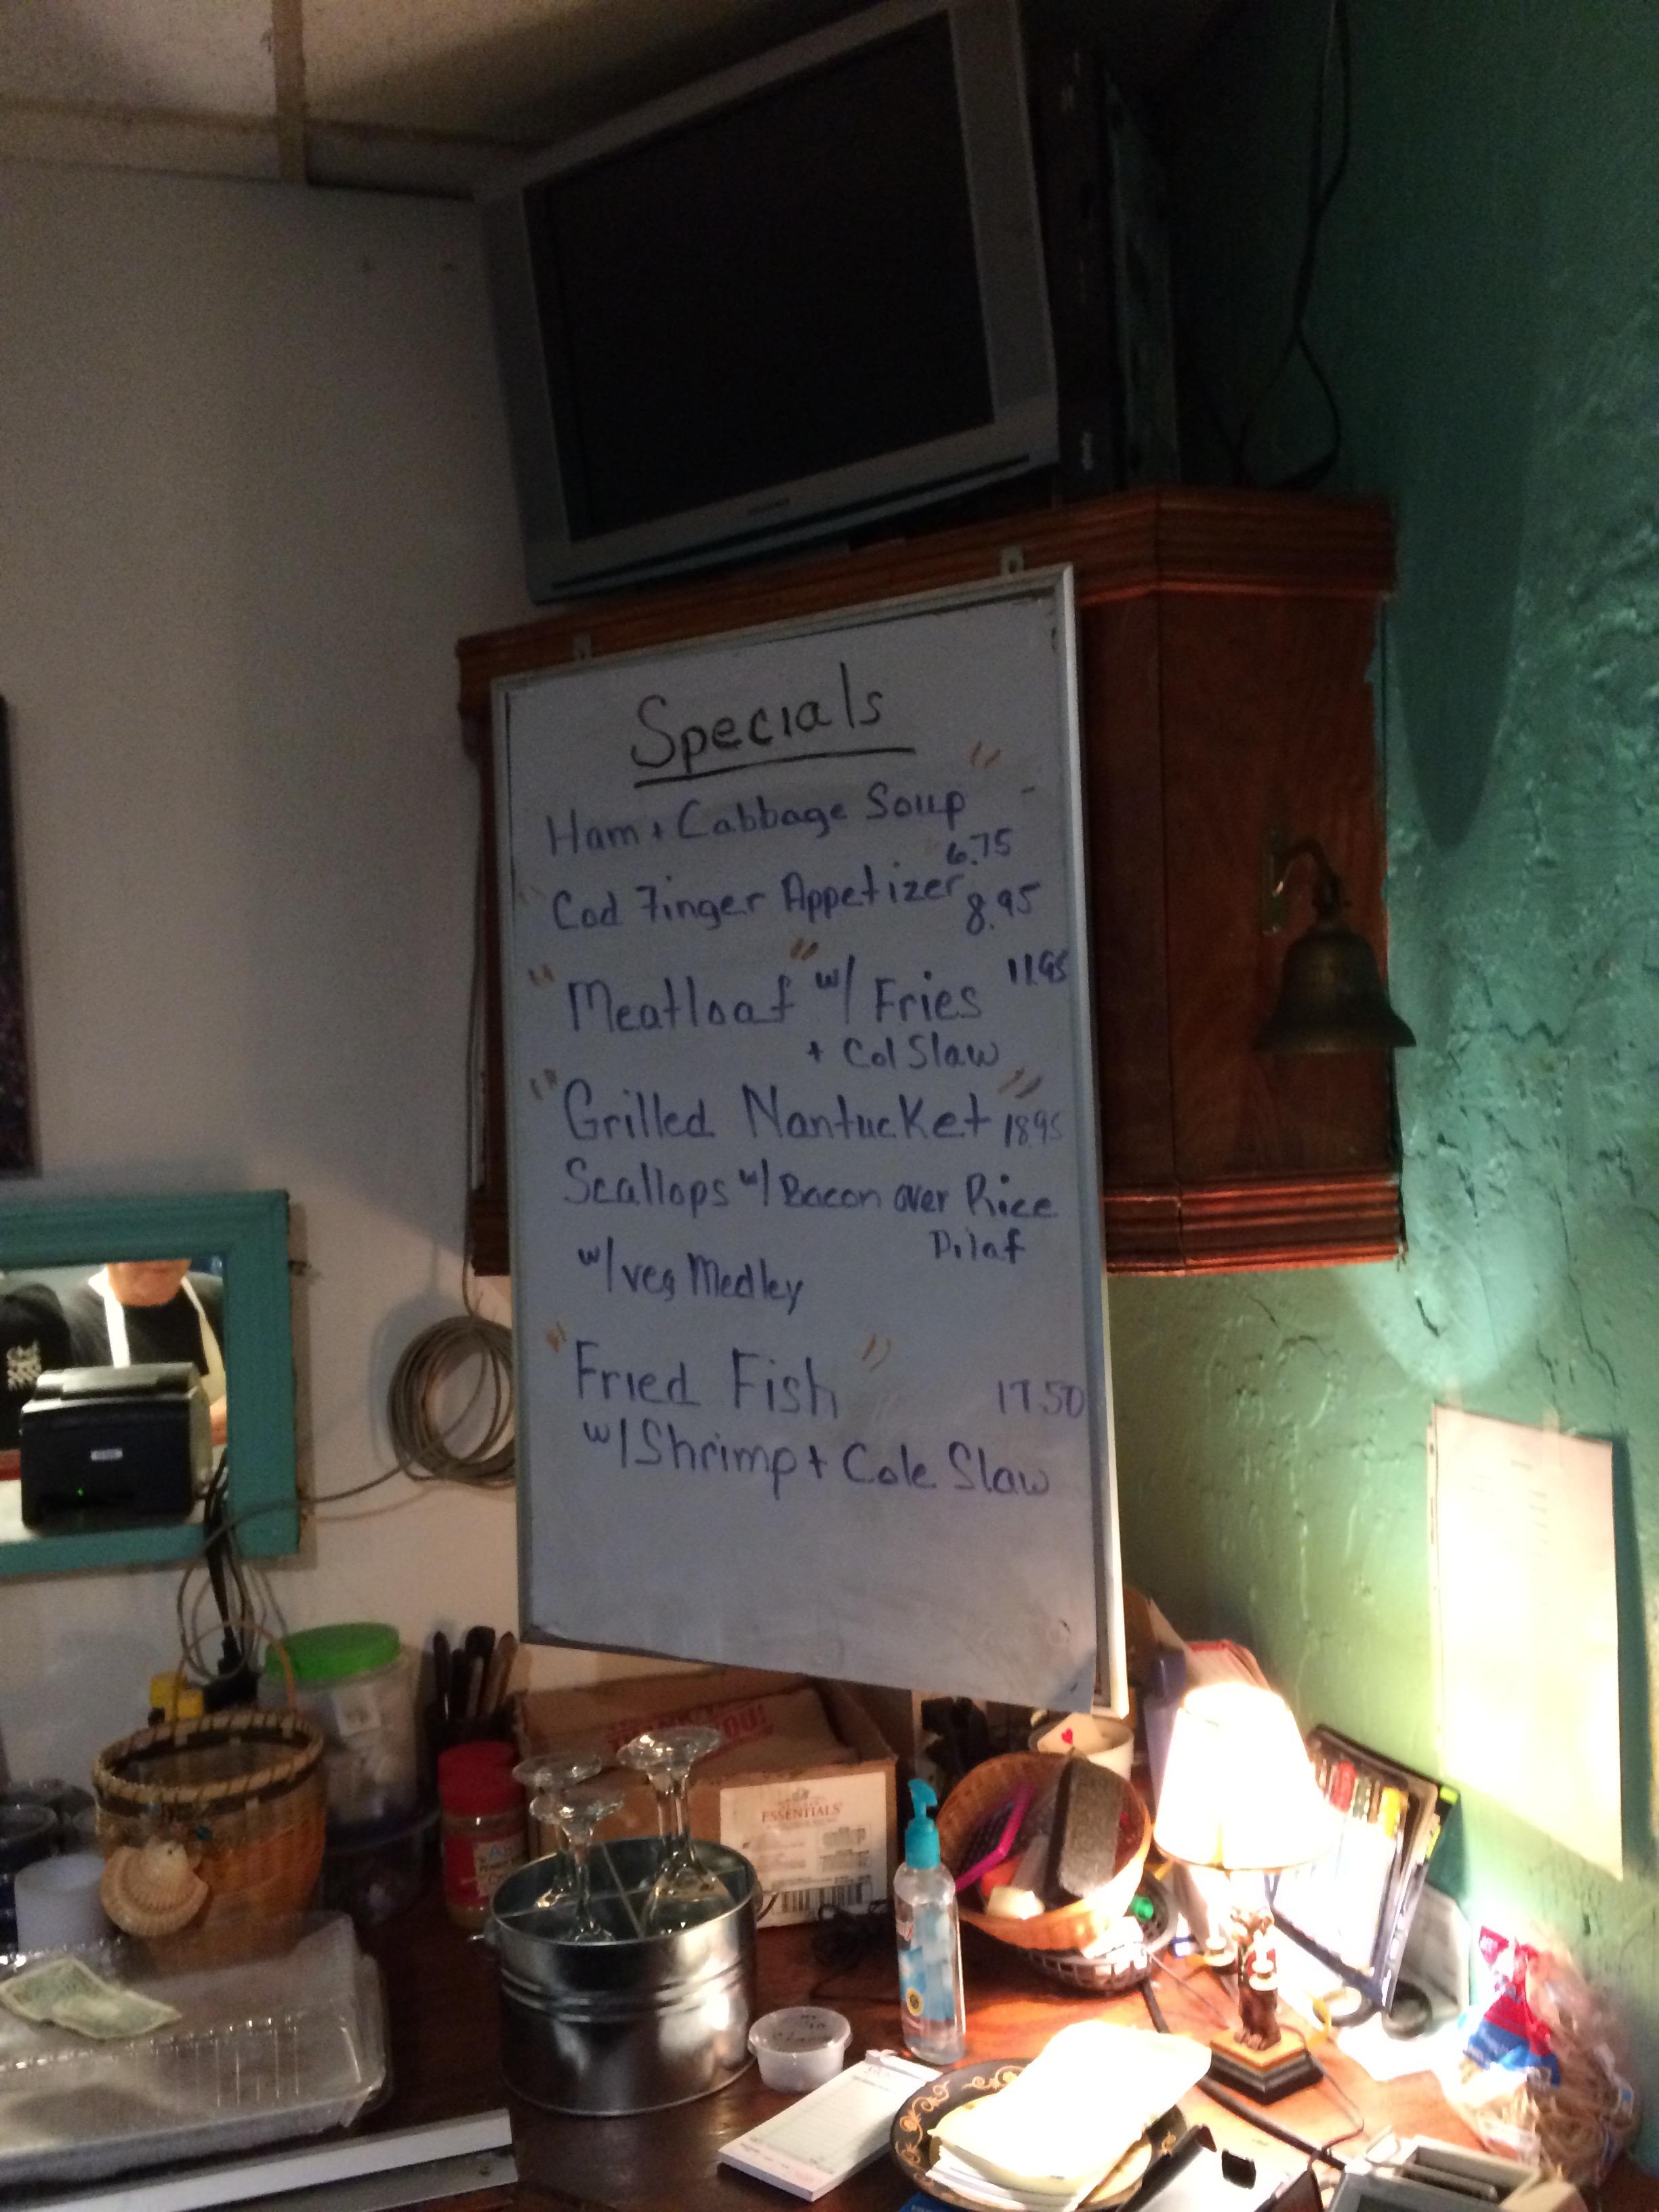 Specials
Ham + Cabbage Soup "
6.75
Cod Finger Appetizer 8.95
"Meatloaf" w/ Fries 11.95
+ Col Slaw
"Grilled Nantucket" 18.95
Scallops w/ Bacon over Rice
Pilaf
w/ veg Medley
"Fried Fish" 17.50
w/ Shrimp + Cole Slaw
YOU!
ESSENTIALS